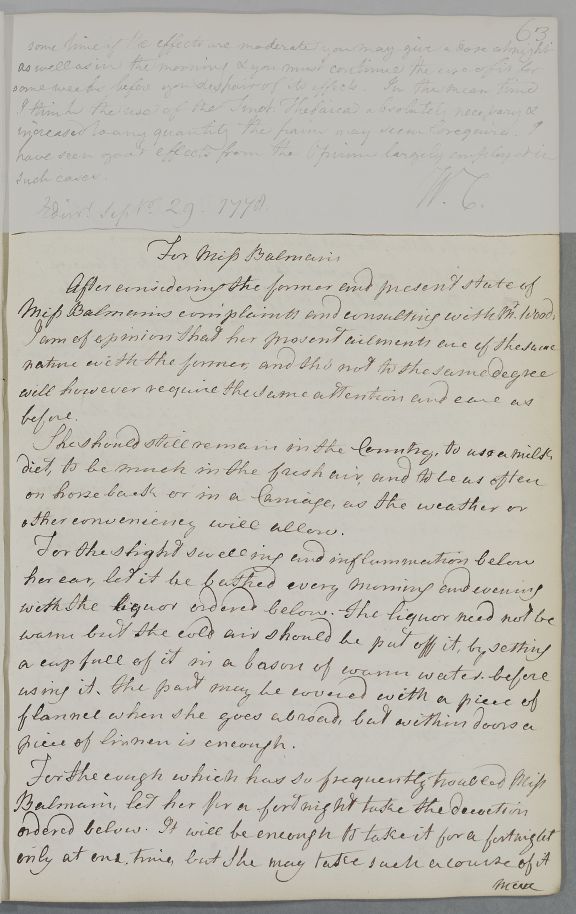 63
some time if the effects are moderate you may give a dose at night
as well as in the morning & you must continue the use of it for
some weeks before you despair of its effects. In the mean time
I think the use of the Tinct. Thebaica absolutely necessary &
increased to any quantity the pain may seem to require. I
have seen good effects from the Opium largely employed in
such cases.
W. C.
Edinr. Sepr. 29. 1778.
For Miss Balmain
After considering the former and present state of
Miss Balmains complaints and consulting with Mr. Wood,
I am of opinion that her present ailments are of the same
nature with the former, and tho' not to the same degree
will however require the same attention and care as
before.
She should still remain in the Country, to use a milk
diet, to be much in the fresh air, and to be as often
on horseback or in a Carriage, as the weather or
other conveniency will allow.
For the slight swelling and inflammation below
her ear, let it be bathed every morning and evening
with the liquor ordered below. The liquor need not be
warm but the cold air should be put off it, by setting
a cupfull of it in a bason of warm water before
using it. The part may be covered with a piece of
flannel when she goes abroad, but within doors a
piece of linnen is enough.
For the cough which has so frequently troubled Miss
Balmain, let her for a fortnight take the decoction
ordered below. It will be enough to take it for a fortnight
only at one time, but she may take such a course of it
mere